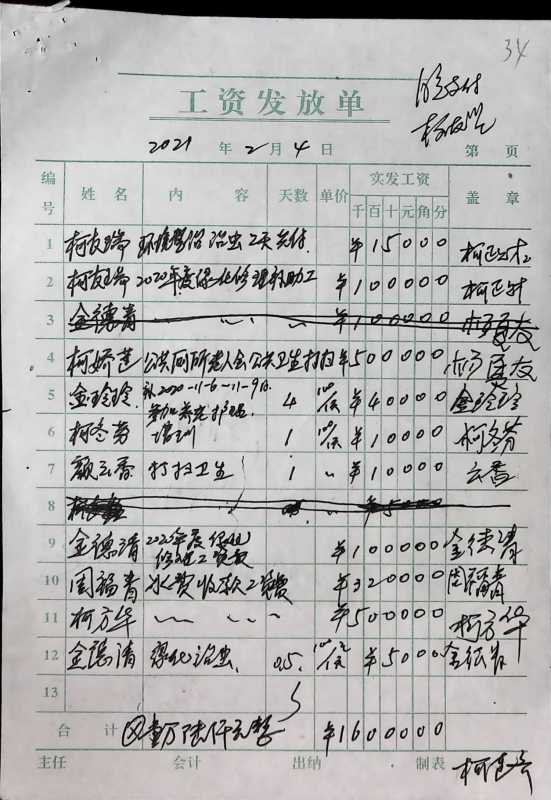 34
现支付
工资发放单
2021 年 2 月 4 日 第 页
编号 姓名 内容 天数 单价 实发工资 盖章
千 百 十 元 角 分
1 柯友瑞 治虫2天 ¥15000
2 柯友瑞 2020年度绿化修理补助工 ¥100000
3 金德青 〃 〃 ¥100000
4 柯娇莲 公共厕所老人会公共卫生打扫 ¥500000
5 金玲玲 2020-11-6-11-9日 参加养老护理 4 100/天 ¥40000 金玲玲
6 柯冬芬 培训 1 100/天 ¥10000 柯冬芬
7 颜云香 打扫卫生 1 〃 ¥10000 云香
8
9 金德清 修理工资费 ¥100000
10 周福青 水费收款工资费 ¥320000 周福青
11 柯方华 〃 〃 ¥500000 柯方华
12 金德清 绿化治虫 0.5 100/天 ¥5000
13
合计 壹万陆仟元整 ¥1600000
主任 会计 出纳 制表